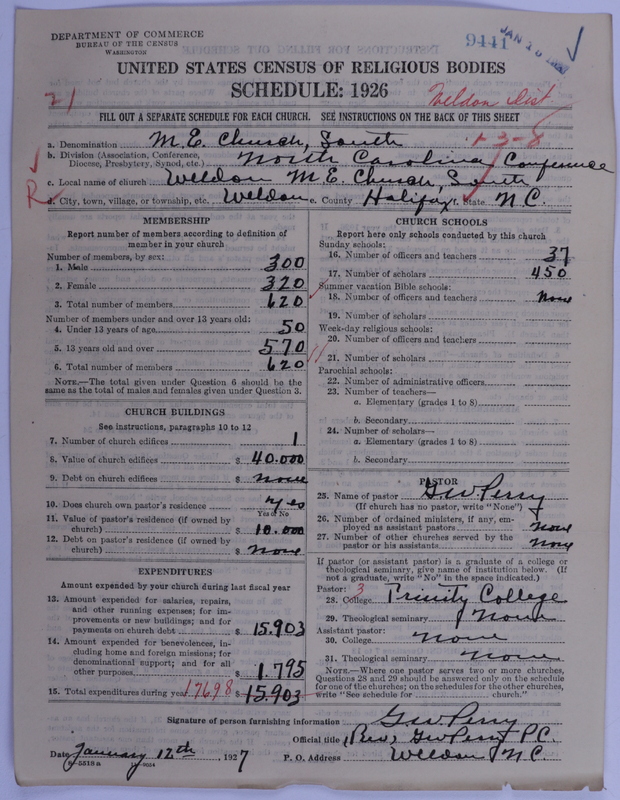 DEPARTMENT OF COMMERCE
BUREAU OF THE CENSUS
WASHINGTON
9441
JAN 18
UNITED STATES CENSUS OF RELIGIOUS BODIES
SCHEDULE: 1926
21
Weldon Dist
FILL OUT A SEPARATE SCHEDULE FOR EACH CHURCH. SEE INSTRUCTIONS ON THE BACK OF THIS SHEET
1-3-8
a. Denomination M.E. Church, South
b. Division (Association, Conference, Diocese, Presbytery, Synod, etc.) North Carolina Conference
c. Local name of church Weldon M.E. Church, South
R
d. City, town, village, or township, etc. Weldon e. County Halifax f. State N.C.
MEMBERSHIP
Report number of members according to definition of
member in your church
Number of members, by sex:
1. Male 300
2. Female 320
3. Total number of members 620
Number of members under and over 13 years old:
4. Under 13 years of age 50
5. 13 years old and over 570
6. Total number of members 620
NOTE.—The total given under Question 6 should be the
same as the total of males and females given under Question 3.
CHURCH BUILDINGS
See instructions, paragraphs 10 to 12
7. Number of church edifices 1
8. Value of church edifices $ 40.000
9. Debt on church edifices $ none
10. Does church own pastor's residence yes
Yes or No
11. Value of pastor's residence (if owned by
church) $ 10.000
12. Debt on pastor's residence (if owned by
church) $ none
EXPENDITURES
Amount expended by your church during last fiscal year
13. Amount expended for salaries, repairs,
and other running expenses; for im-
provements or new buildings; and for
payments on church debt $ 15.903
14. Amount expended for benevolences, in-
cluding home and foreign missions; for
denominational support; and for all
other purposes $ 1.795
15. Total expenditures during year 17698 $ 15.903
CHURCH SCHOOLS
Report here only schools conducted by this church
Sunday schools:
16. Number of officers and teachers 37
17. Number of scholars 450
Summer vacation Bible schools:
18. Number of officers and teachers none
19. Number of scholars
Week-day religious schools:
20. Number of officers and teachers
21. Number of scholars
Parochial schools:
22. Number of administrative officers
23. Number of teachers—
a. Elementary (grades 1 to 8)
b. Secondary
24. Number of scholars—
a. Elementary (grades 1 to 8)
b. Secondary
PASTOR
25. Name of pastor Geo Perry
(If church has no pastor, write "None")
26. Number of ordained ministers, if any, em-
ployed as assistant pastors none
27. Number of other churches served by the
pastor or his assistants none
If pastor (or assistant pastor) is a graduate of a college or
theological seminary, give name of institution below. (If
not a graduate, write "No" in the space indicated.)
Pastor: 3
28. College Trinity College
29. Theological seminary none
Assistant pastor:
30. College none
31. Theological seminary none
NOTE.—Where one pastor serves two or more churches,
Questions 28 and 29 should be answered only on the schedule
for one of the churches; on the schedules for the other churches,
write "See schedule for church."
Signature of person furnishing information Geo Perry
Official title (Rev) Geo Perry P.C.
Date January 12th, 1927 P. O. Address Weldon N.C.